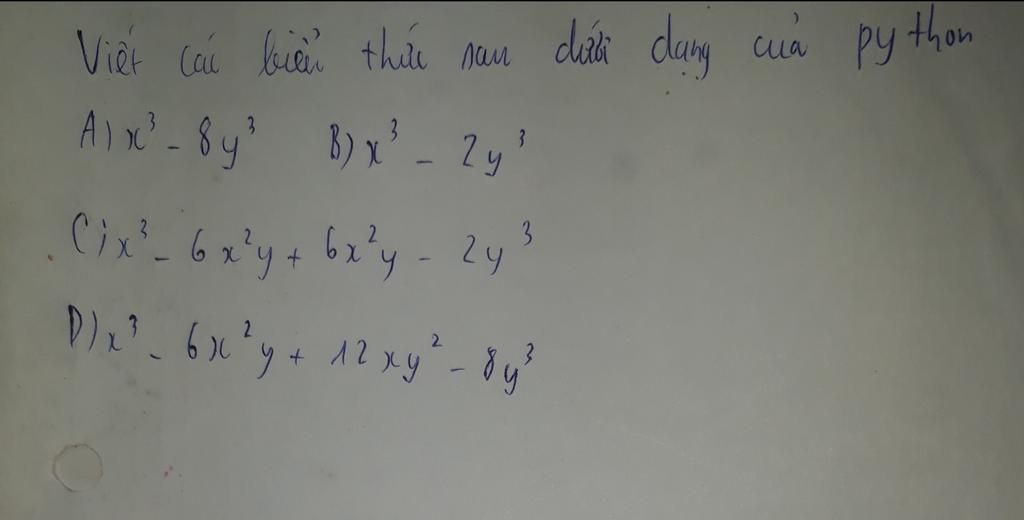 Viết các biểu thức sau dưới dạng của python
A) x³ - 8y³ B) x³ - 2y³
C) x³ - 6x²y + 6x²y - 2y³
D) x³ - 6x²y + 12xy² - 8y³